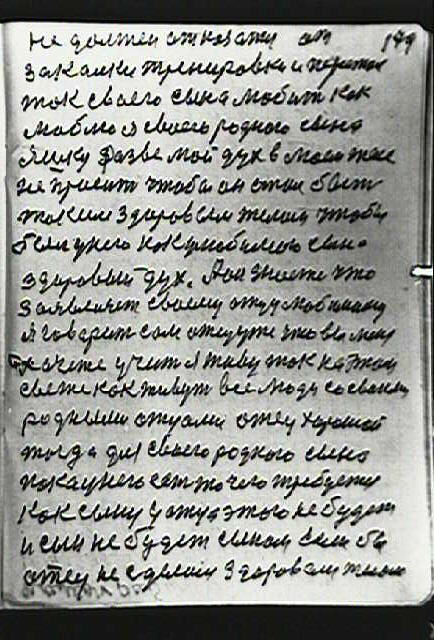 не должен отказати от 199
закалки тренировки и
так своего сына любит как
люблю я своего родного сына
Яшку разве мой дух в моем теле
не просит чтобы он стал быть
таким здоровым телом чтобы
был у него как у любимого сына
здоровый дух. А он знаете что
заявляет своему отцу любимому
я говорит сам отец уже что вы меня
хочете учит я живу так на этом
свете как живут все люди со своими
родными отцами отец хороший
тогда для своего родного сына
пока у него есть то чего требуется
как сыну у отца этого не будет
и сын не будет сыном сам бы
отец не сделал здоровым телом